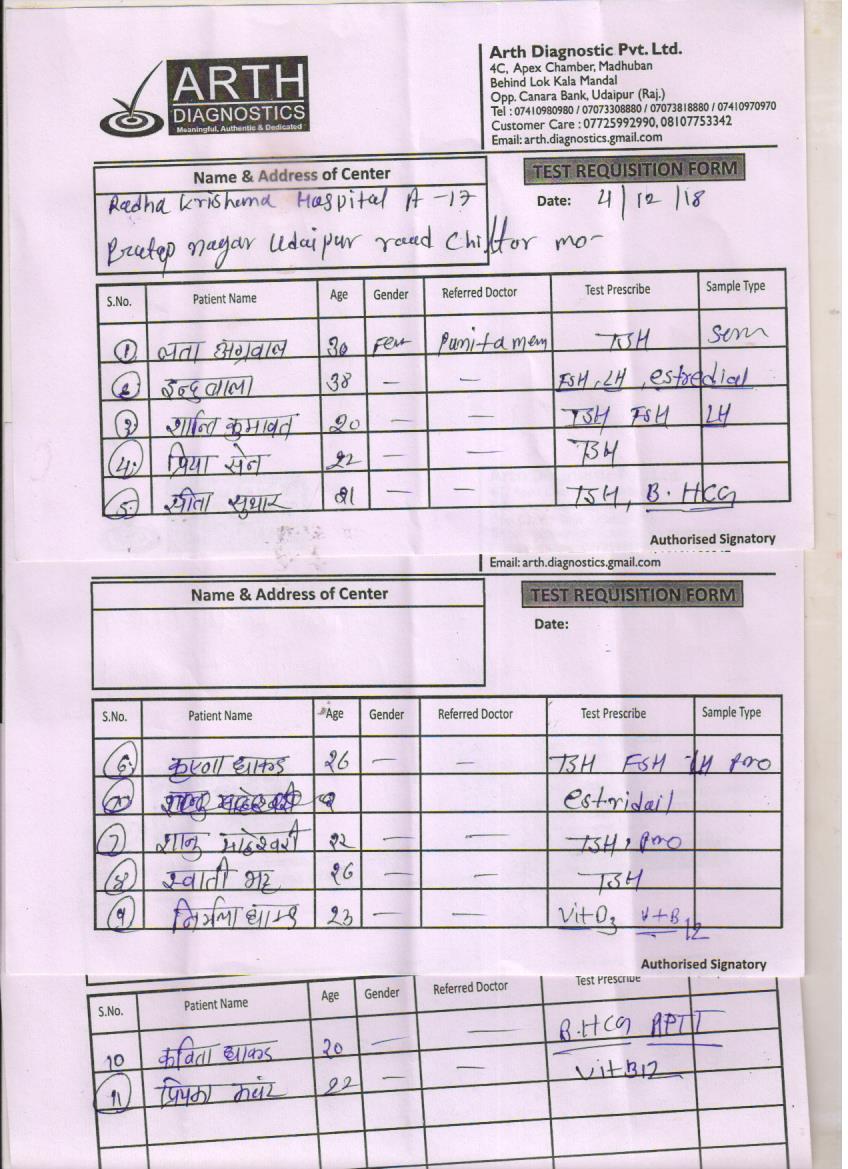 ARTH
DIAGNOSTICS
Meaningful, Authentic & Dedicated
Arth Diagnostic Pvt. Ltd.
4C, Apex Chamber, Madhuban
Behind Lok Kala Mandal
Opp. Canara Bank, Udaipur (Raj.)
Tel : 07410980980 / 07073308880 / 07073818880 / 07410970970
Customer Care : 07725992990, 08107753342
Email: arth.diagnostics.gmail.com
Name & Address of Center
Radha Krishna Hospital A -17
Pratap nagar Udaipur road Chittor mo-
TEST REQUISITION FORM
Date: 4/12/18
S.No. Patient Name Age Gender Referred Doctor Test Prescribe Sample Type
1 लता अग्रवाल 30 Fem Punita mem TSH Serm
2 इन्दु वाला 38 — — FSH, LH, estredial
3. शान्ति कुमावत 20 — — TSH FSH LH
4. प्रिया सेन 22 — — TSH
5. सीता सुथार 21 — — TSH, B. HCG
Authorised Signatory
Email: arth.diagnostics.gmail.com
Name & Address of Center
TEST REQUISITION FORM
Date:
S.No. Patient Name Age Gender Referred Doctor Test Prescribe Sample Type
6. धाकड 26 — — TSH FSH LH pro
estridail
7 माहेश्वरी 22 — — TSH, pro
8 स्वाती भट्ट 26 — — TSH
9 निर्मला धाकड 23 — — Vit D3 Vit B12
Authorised Signatory
S.No. Patient Name Age Gender Referred Doctor Test Prescribe
10 कविता धाकड 20 — — B.HCG APTT
11 कवंर 22 — — Vit B12